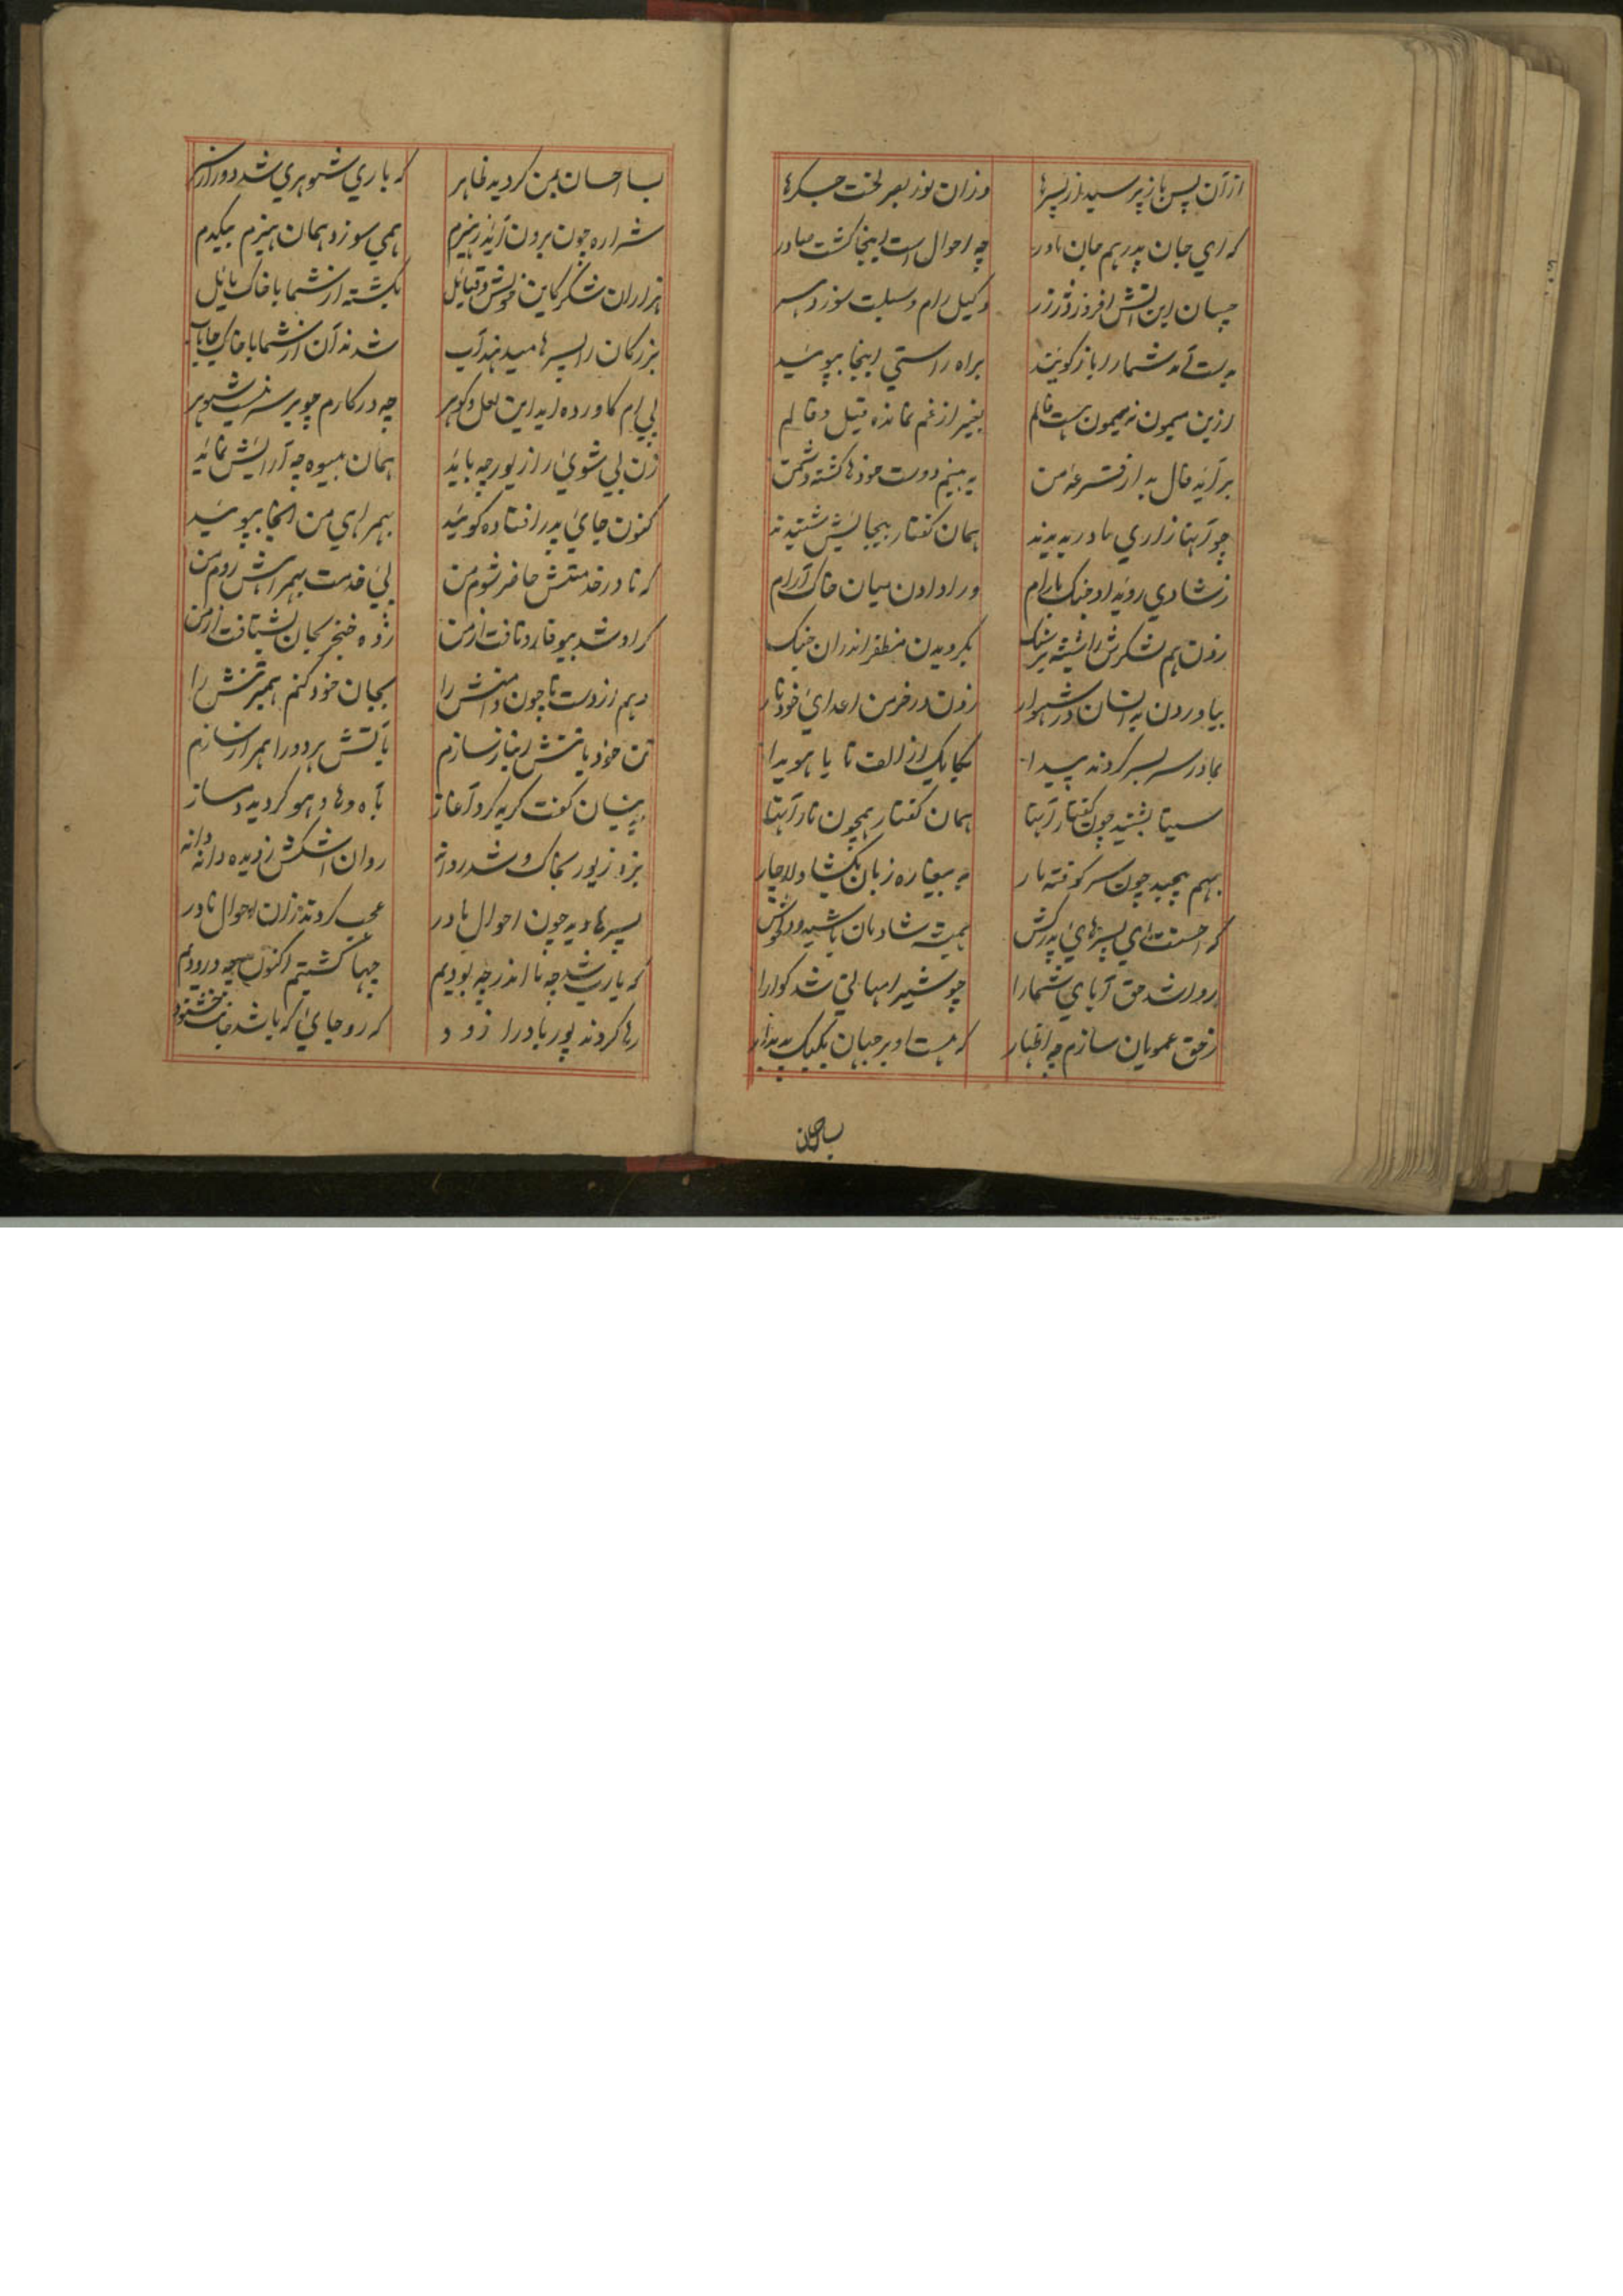 ازان پس باز پرسید از پسرها وزان نور بصر لخت جگرها
که ای جان پدر هم جان مادر چه احوال است اینجا گشت صادر
چسان این آتش افروز وکیل رام و سیلت سوزد
شما را باز گویید براه راستی اینجا بپویید
ازین میمون نه میمون هست فالم بغیر از غم نمانده قیل و قالم
برآید فال بد از قرعه من به بینم دوست خود را کشته دشمن
چو آنها زاری مادر بدیدند همان گفتار بیجایش شنیدند
زشادی روند او جنگ با رام ورا دادن میان خاک آرام
زدن هم لشکرش را بگردیدن مظفر اندران جنگ
بیاوردن بدانسان در شهوار زدن در خرمن اعدای خود نار
بمادر سر بسر کردند پیدا یکایک از الف تا یا هویدا
سیتا بشنید چون گفتار آنها همان گفتار همچون نار آنها
بهم پیچید چون سر کوفته مار به بیغاره زبان بگشاد لاچار
که احسنت ای پسرهای پدرکش همیشه شادمان باشید و دلخوش
روا شد حق آبای شما را چو شیر امهاتی شد گوارا
زحق عمویان سازم چه اظهار که هست او بر جهان یکیک پدیدار
بسا احسان
بسا احسان بمن گردید ظاهر که باری شوهری شد دور از سر
شراره چون برون آید ز هیزم همی سوزد همان هیزم بیکدم
هزاران شکر کاین خویش و قبایل بکشته از شما با خاک مایل
بزرگان را پسرها میدهند آب شدند آن از شما با خاک
پی ام کاورده اید این لعل و گوهر چه در کارم چو بر سر نیست شوهر
زن بی شوی را زیور چه باید همان بیوه چه آرایش نماید
کنون جای پدر افتاده گویید بهمراهی من آنجا بپویید
که تا در خدمتش حاضر شوم من پی خدمت بهمراهش روم من
گر او شد بیوفا رو تافت از من زده خنجر بجان بشتافت از من
دهم از دست تا چون دامنش را بجان خود کنم همبر تنش را
تن خود با تنش انباز سازم بآتش هر دو را همراز سازم
بدینسان گفت گریه کرد آغاز بآه و ها و هو گردید دمساز
بزد زیور بخاک و شد روانه روان اشکش ز دیده دانه دانه
پسرها دید چون احوال مادر عجب کردند زان احوال نادر
که یارب شد چه ما اندر چه بودیم چها کشتیم اکنون چه درودیم
رها کردند پور باد را زود که رو جای که باشد